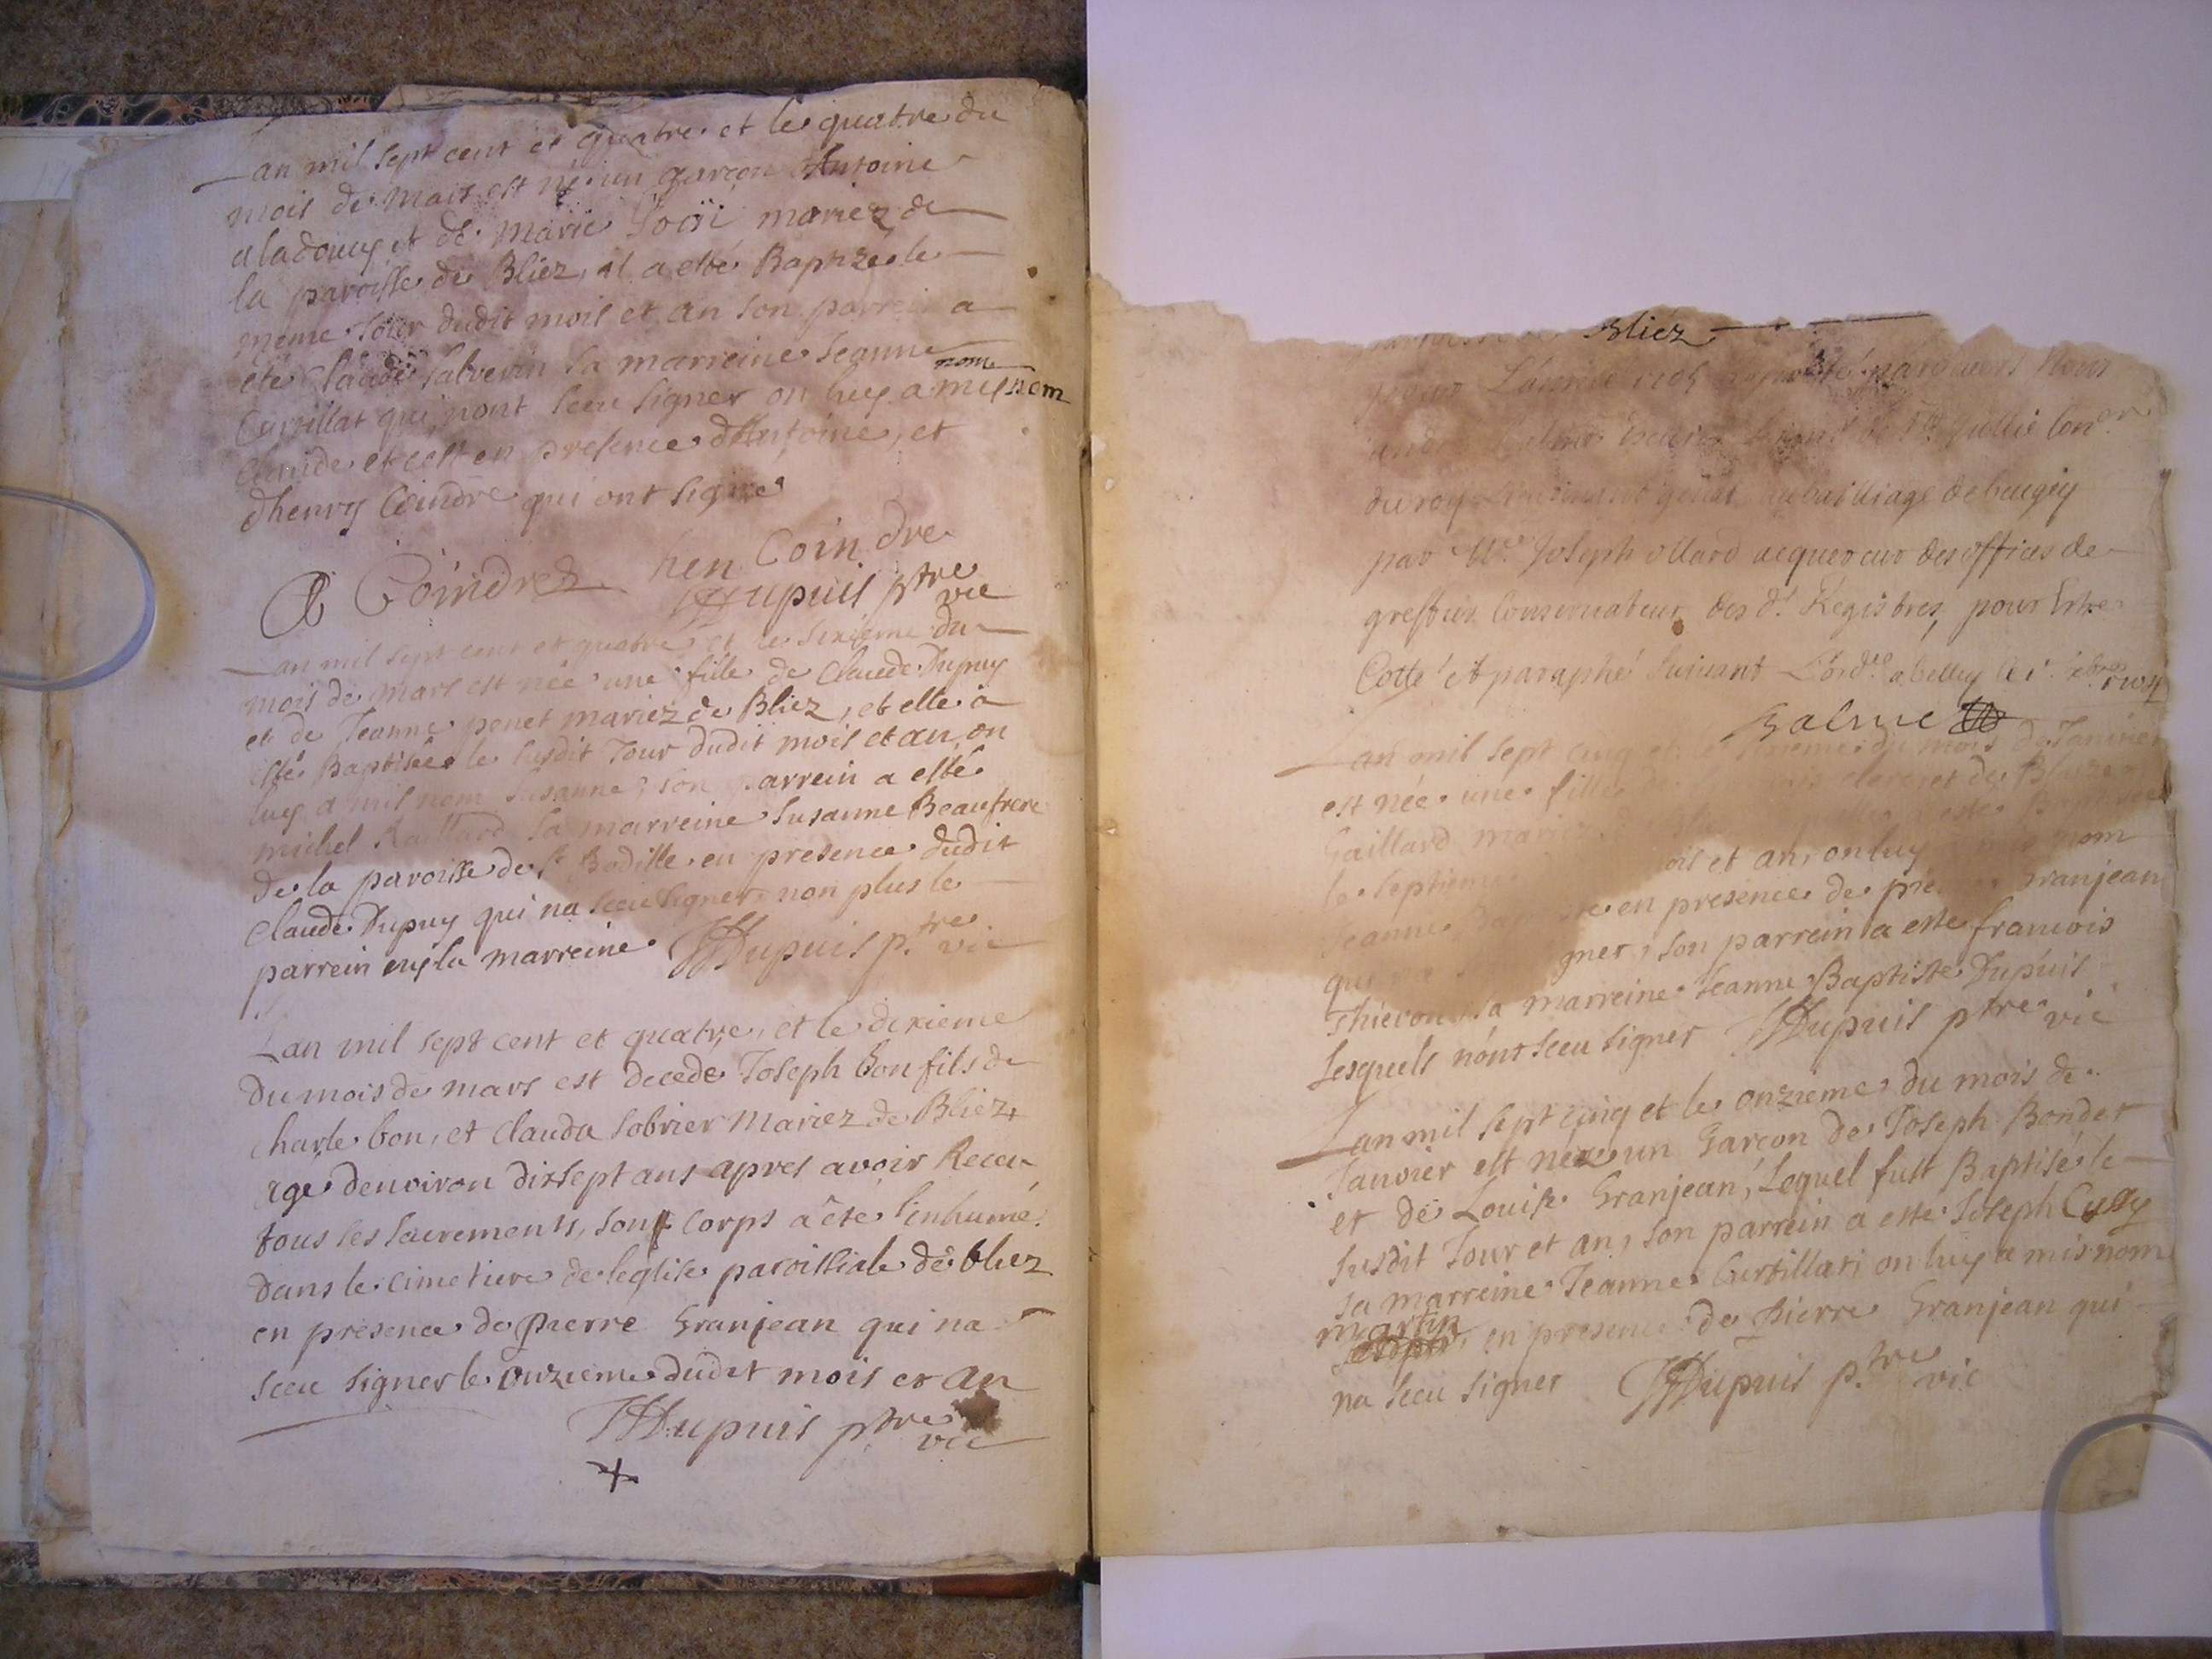 Lan mil sept cent et quatre et le quatre du
mois de Mars est né un garçon Antoine
aladouuy et de marie Jooïi mariez de
la paroisse de Bliez, il a esté Baptizé le
même Jour dudit mois et an son parrein a
été Claude Salverin sa marreine Jeanne
Curtillat qui nont sceu signer on luy a mis nom
Claude et cest en presence dAntoine, et
dhenry Coindre qui ont signe
A Coindrez hen Coindre
JDupuis ptre vic
Lan mil sept cent et quatre et le sixieme du
mois de mars est née une fille de Claude Dupuy
et de Jeanne penet mariez de Bliez, et elle a
esté Baptisée le susdit Jour dudit mois et an, on
luy a mis nom Susanne, son parrein a esté
michel Raillard sa marreine Susanne Beaufrere
de la paroisse de St Bodille en presence dudit
Claude Dupuy qui na sceu signer non plus le
parrein ny la marreine JDupuis p.tre vic
Lan mil sept cent et quatre, et le dixieme
du mois de mars est decedé Joseph bon fils de
charle bon, et Clauda Sobrier Mariez de Bliez,
age denviron dixsept ans apres avoir Receu
tous les sacrements, son corps a été Cinhumé
dans le cimetiere de leglise paroissiale de bliez
en presence de pierre Granjean qui na
sceu signer le onzieme dudit mois et an
JDupuis ptre vic
Bliez
pour Lannée 1705 parcours Nous
du roy Lieutenant genal au bailliage de beugey
par Me Joseph ollard acquereur des offices de
greffier Conservateur des dt Registres, pour Estre
Cotté et paraphé suivant Lorde. a belley le 1r
Balme
Lan mil sept cinq et le sixieme du mois de Janvier
est née une fille de clerc et de
Gaillard mariez
le septieme mois et an, on luy a mis nom
Jeanne Baptiste en presence de pierre Granjean
qui na sceu signer, son parrein a esté francois
Thievon sa marreine Jeanne Baptiste Dupuis
Lesquels n'ont sceu signer JDupuis ptre vic
Lan mil sept cinq et le onzieme du mois de
Janvier est né un Garcon de Joseph Bondet
et de Louise Granjean, Lequel fust Baptisé le
susdit Jour et an, son parrein a esté Joseph Cussy
sa marreine Jeanne Curtillat, on luy a mis nom
martin
en presence de Pierre Granjean qui
na sceu signer JDupuis p.tre vic